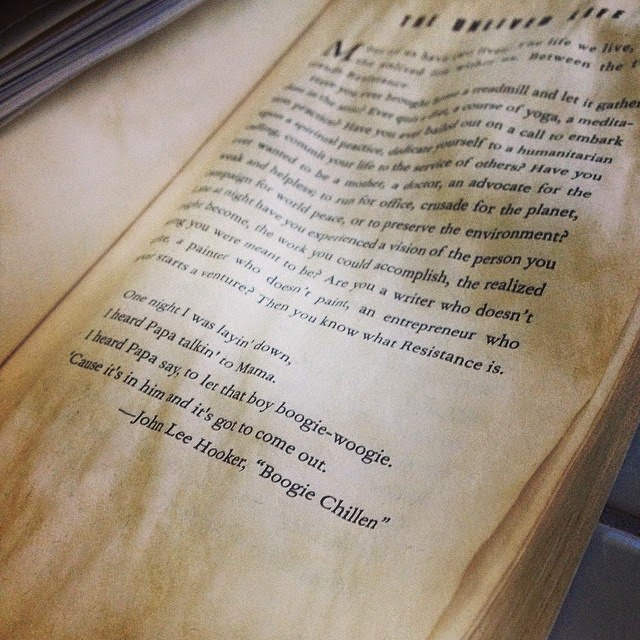 THE UNLIVED LIFE
Most of us have two lives. The life we live,
the unlived life within us. Between the t
stands Resistance.
Have you ever brought home a treadmill and let it gather
in the attic? Ever quit a diet, a course of yoga, a medita-
tion practice? Have you ever bailed out on a call to embark
upon a spiritual practice, dedicate yourself to a humanitarian
calling, commit your life to the service of others? Have you
ever wanted to be a mother, a doctor, an advocate for the
weak and helpless; to run for office, crusade for the planet,
campaign for world peace, or to preserve the environment?
Late at night have you experienced a vision of the person you
might become, the work you could accomplish, the realized
being you were meant to be? Are you a writer who doesn't
write, a painter who doesn't paint, an entrepreneur who
never starts a venture? Then you know what Resistance is.
One night I was layin' down,
I heard Papa talkin' to Mama.
I heard Papa say, to let that boy boogie-woogie.
'Cause it's in him and it's got to come out.
—John Lee Hooker, "Boogie Chillen"